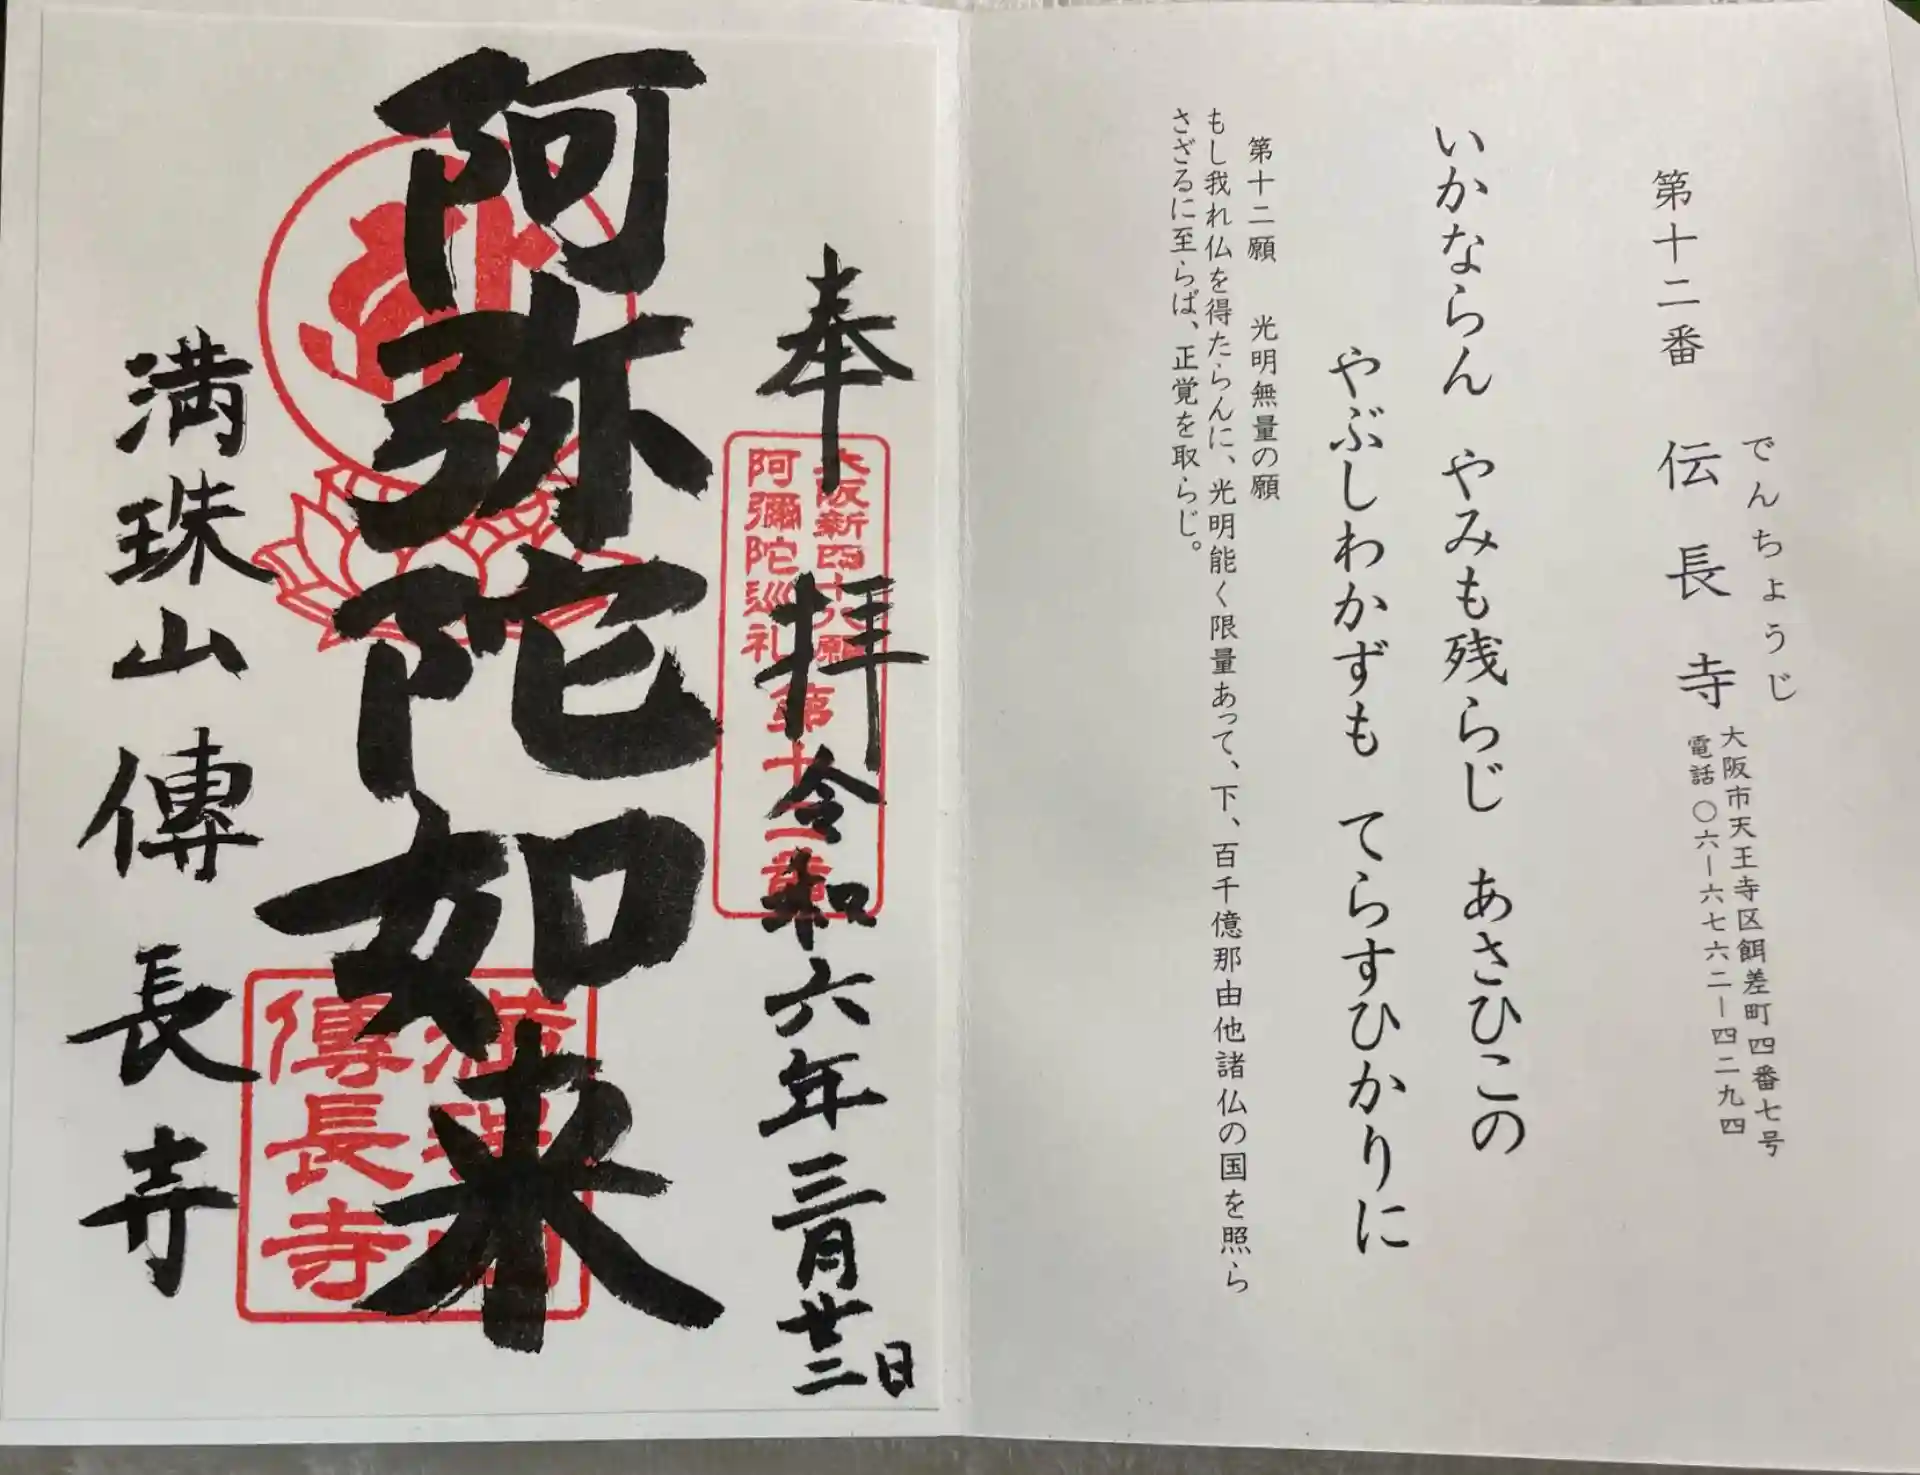 でんちょうじ
第十二番 伝長寺
大阪市天王寺区餌差町四番七号
電話〇六ー六七六二ー四二九四
いかならん やみも残らじ あさひこの
やぶしわかずも てらすひかりに
第十二願 光明無量の願
もし我れ仏を得たらんに、光明能く限量あって、下、百千億那由他諸仏の国を照ら
さざるに至らば、正覚を取らじ。
奉拝
令和六年三月廿二日
大阪新四十八願
阿彌陀巡礼
第十二番
阿弥陀如来
傳長寺
満珠山傳長寺